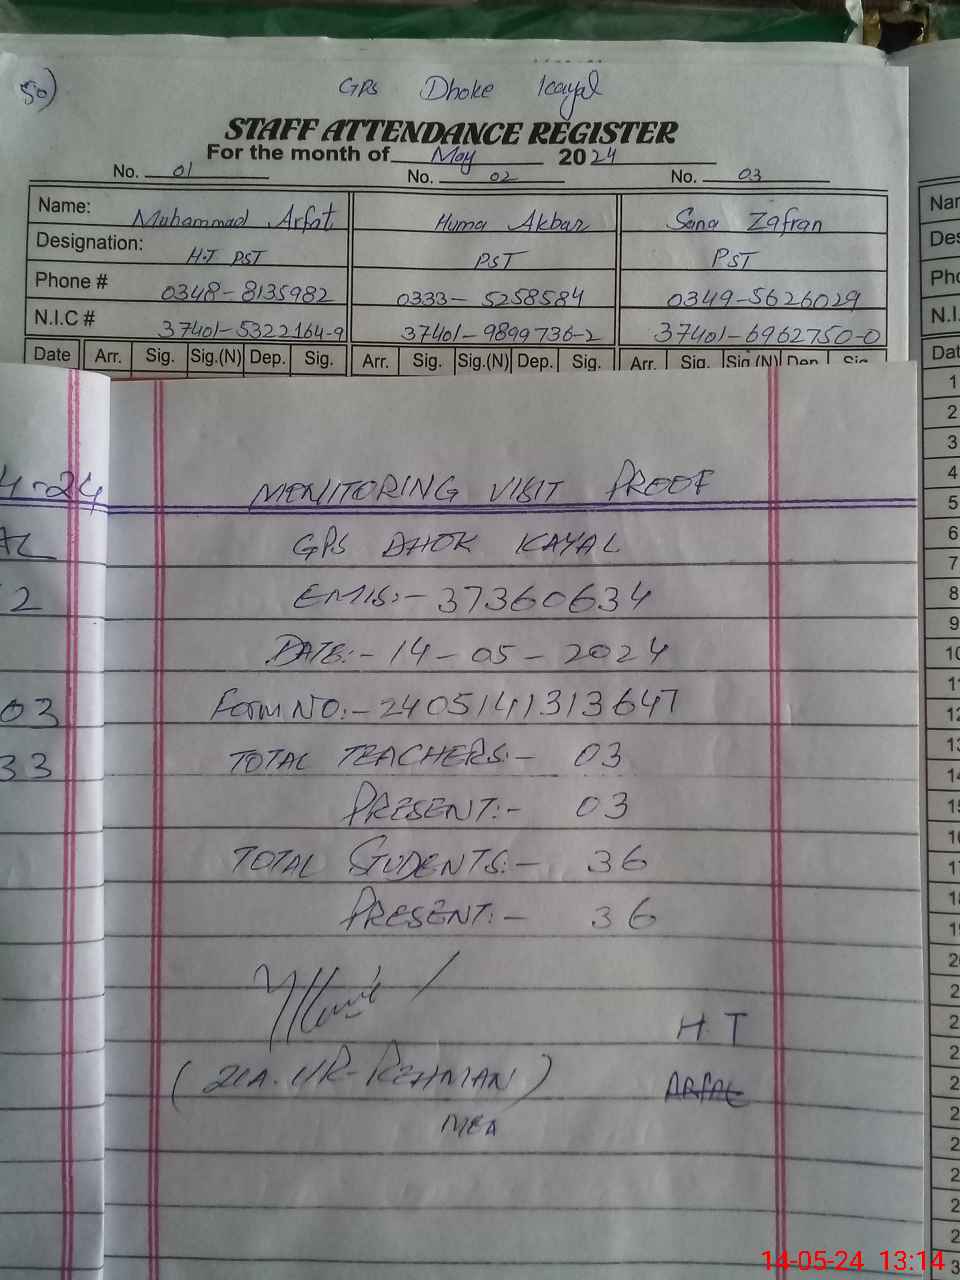 50)
GPS Dhoke Kayal
STAFF ATTENDANCE REGISTER
For the month of May 2024
No. 01 No. 02 No. 03
Name: Muhammad Arfat Huma Akbar Sana Zafran
Designation: H.T PST PST PST
Phone # 0348-8135982 0333-5258584 0349-5626029
N.I.C # 37401-5322164-9 37401-9899736-2 37401-6962750-0
Date Arr. Sig. Sig.(N) Dep. Sig. Arr. Sig. Sig.(N) Dep. Sig. Arr. Sig. Sig.(N) Dep Sig
4-24
AL
2
03
33
MONITORING VISIT PROOF
GPS DHOK KAYAL
EMIS:- 37360634
DATE:- 14-05-2024
FORM NO:- 2405141313647
TOTAL TEACHERS:- 03
PRESENT:- 03
TOTAL STUDENTS:- 36
PRESENT:- 36
(ZIA.UR-REHMAN)
MEA
H.T
ARFAT
Nar
Des
Pho
N.I.
Dat
1
2
3
4
5
6
7
8
9
10
11
12
13
14
15
16
17
18
19
2
2
2
2
2
2
2
2
2
2
3
14-05-24 13:14